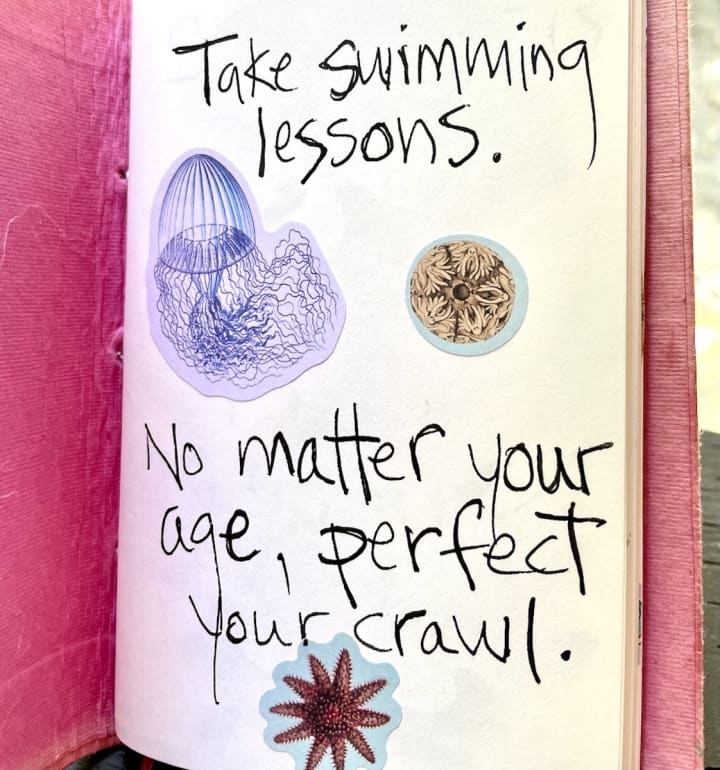 Take swimming
lessons.
No matter your
age, perfect
your crawl.